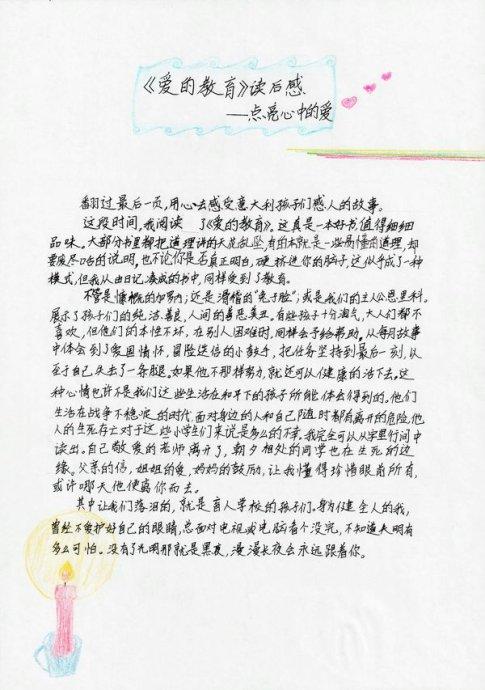 《爱的教育》读后感
——点亮心中的爱
翻过最后一页,用心去感受意大利孩子们感人的故事。
这段时间,我阅读 了《爱的教育》,这真是一本好书,值得细细
品味。大部分书里都把道理讲的天花乱坠,有的本就是一些易懂的道理,却
要废尽口舌的说明,也不论你是否真正明白,硬挤进你的脑子,这似乎成了一种
模式,但我从由日记凑成的书中,同样受到了教育。
不管是慷慨的加罗内;还是滑稽的“兔子脸”;或是我们的主人公恩里科。
展示了孩子们的纯洁、善良,人间的善恶美丑。有些孩子十分淘气,大人们都不
喜欢,但他们的本性不坏,在别人困难时,同样会予给帮助。从每月故事
中体会到了爱国情怀,冒险送信的小鼓手,把任务坚持到最后一刻,以
至于自己失去了一条腿。如果他不那样努力,就还可以健康的活下去。这
种心情也许不是我们这些生活在和平下的孩子所能体会得到的。他们
生活在战争不稳定的时代,面对身边的人和自己随时都有离开的危险,他
人的生死存亡对于这些小学生们来说是多么的不幸。我完全可以从字里行间中
读出。自己敬爱的老师离开了,朝夕相处的同学也在生死的边
缘,父亲的信,姐姐的爱,妈妈的鼓励,让我懂得珍惜眼前所有,
或许哪天他便离你而去。
其中让我们落泪的,就是盲人学校的孩子们。身为健全人的我,
曾经不爱护好自己的眼睛,总面对电视或电脑看个没完,不知道失明有
多么可怕。没有了光明那就是黑夜,漫漫长夜会永远跟着你。